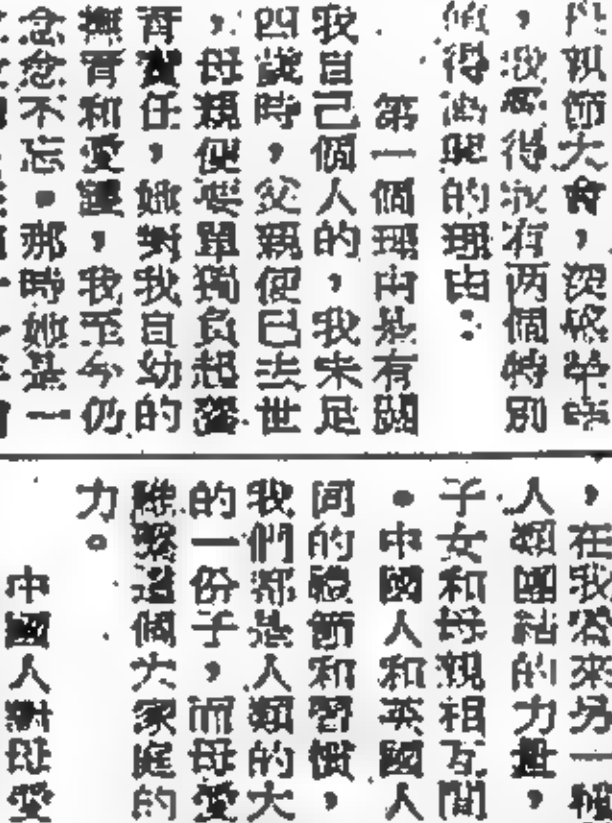 親節大會，深感榮幸
，我覺得我有兩個特別
值得高興的理由：
第一個理由是有關
我自己個人的，我未足
四歲時，父親便已去世
，母親便要單獨負起養
育責任，她對我自幼的
撫育和愛護，我至今仍
念念不忘。那時她是一
，在我看來另一種
人類團結的力量，
子女和母親相互間
。中國人和英國人
同的禮節和習慣，
我們都是人類的大
的一份子，而母愛
維繫這個大家庭的
力。
中國人對母愛